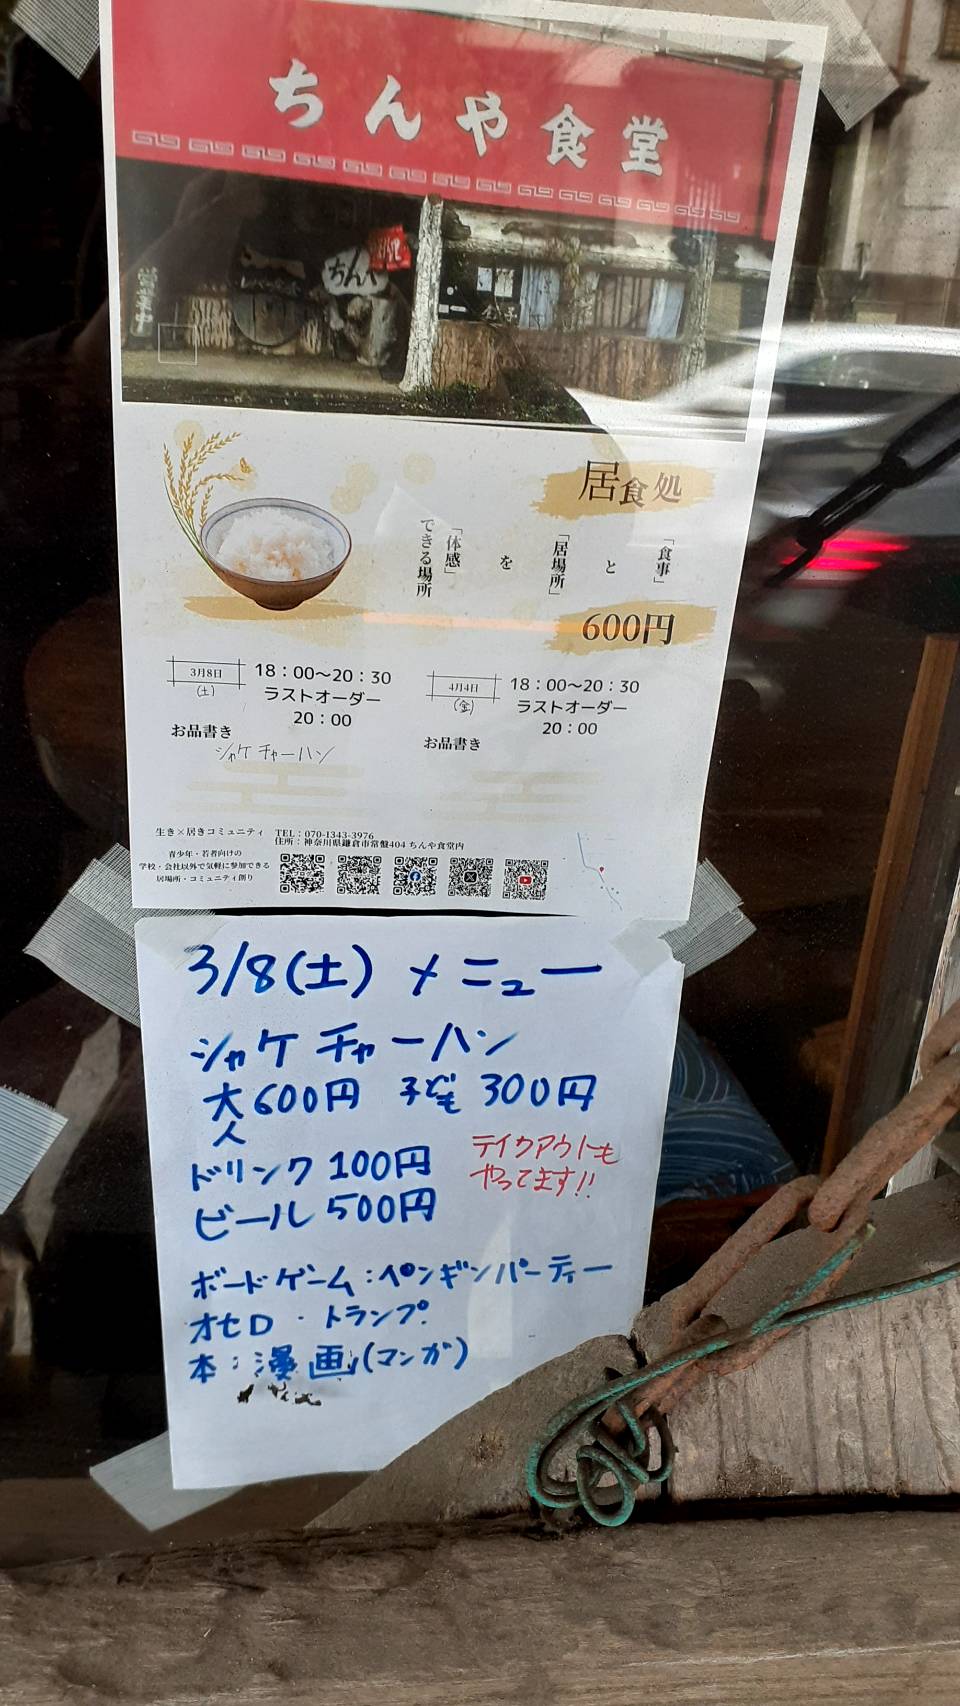 ちんや食堂
ちんや
居食処
「食事」
と
「居場所」
を
「体感」
できる場所
600円
3月8日
(土)
18：00〜20：30
ラストオーダー
20：00
お品書き
シャケチャーハン
4月4日
(金)
18：00〜20：30
ラストオーダー
20：00
お品書き
生き×居きコミュニティ
青少年・若者向けの
学校・会社以外で気軽に参加できる
居場所・コミュニティ創り
TEL：070-1343-3976
住所：神奈川県鎌倉市常盤404 ちんや食堂内
3/8(土) メニュー
シャケチャーハン
大人600円 子ども 300円
ドリンク 100円
ビール 500円
テイクアウトも
やってます!!
ボードゲーム：ペンギンパーティー
オセロ・トランプ
本：漫画(マンガ)